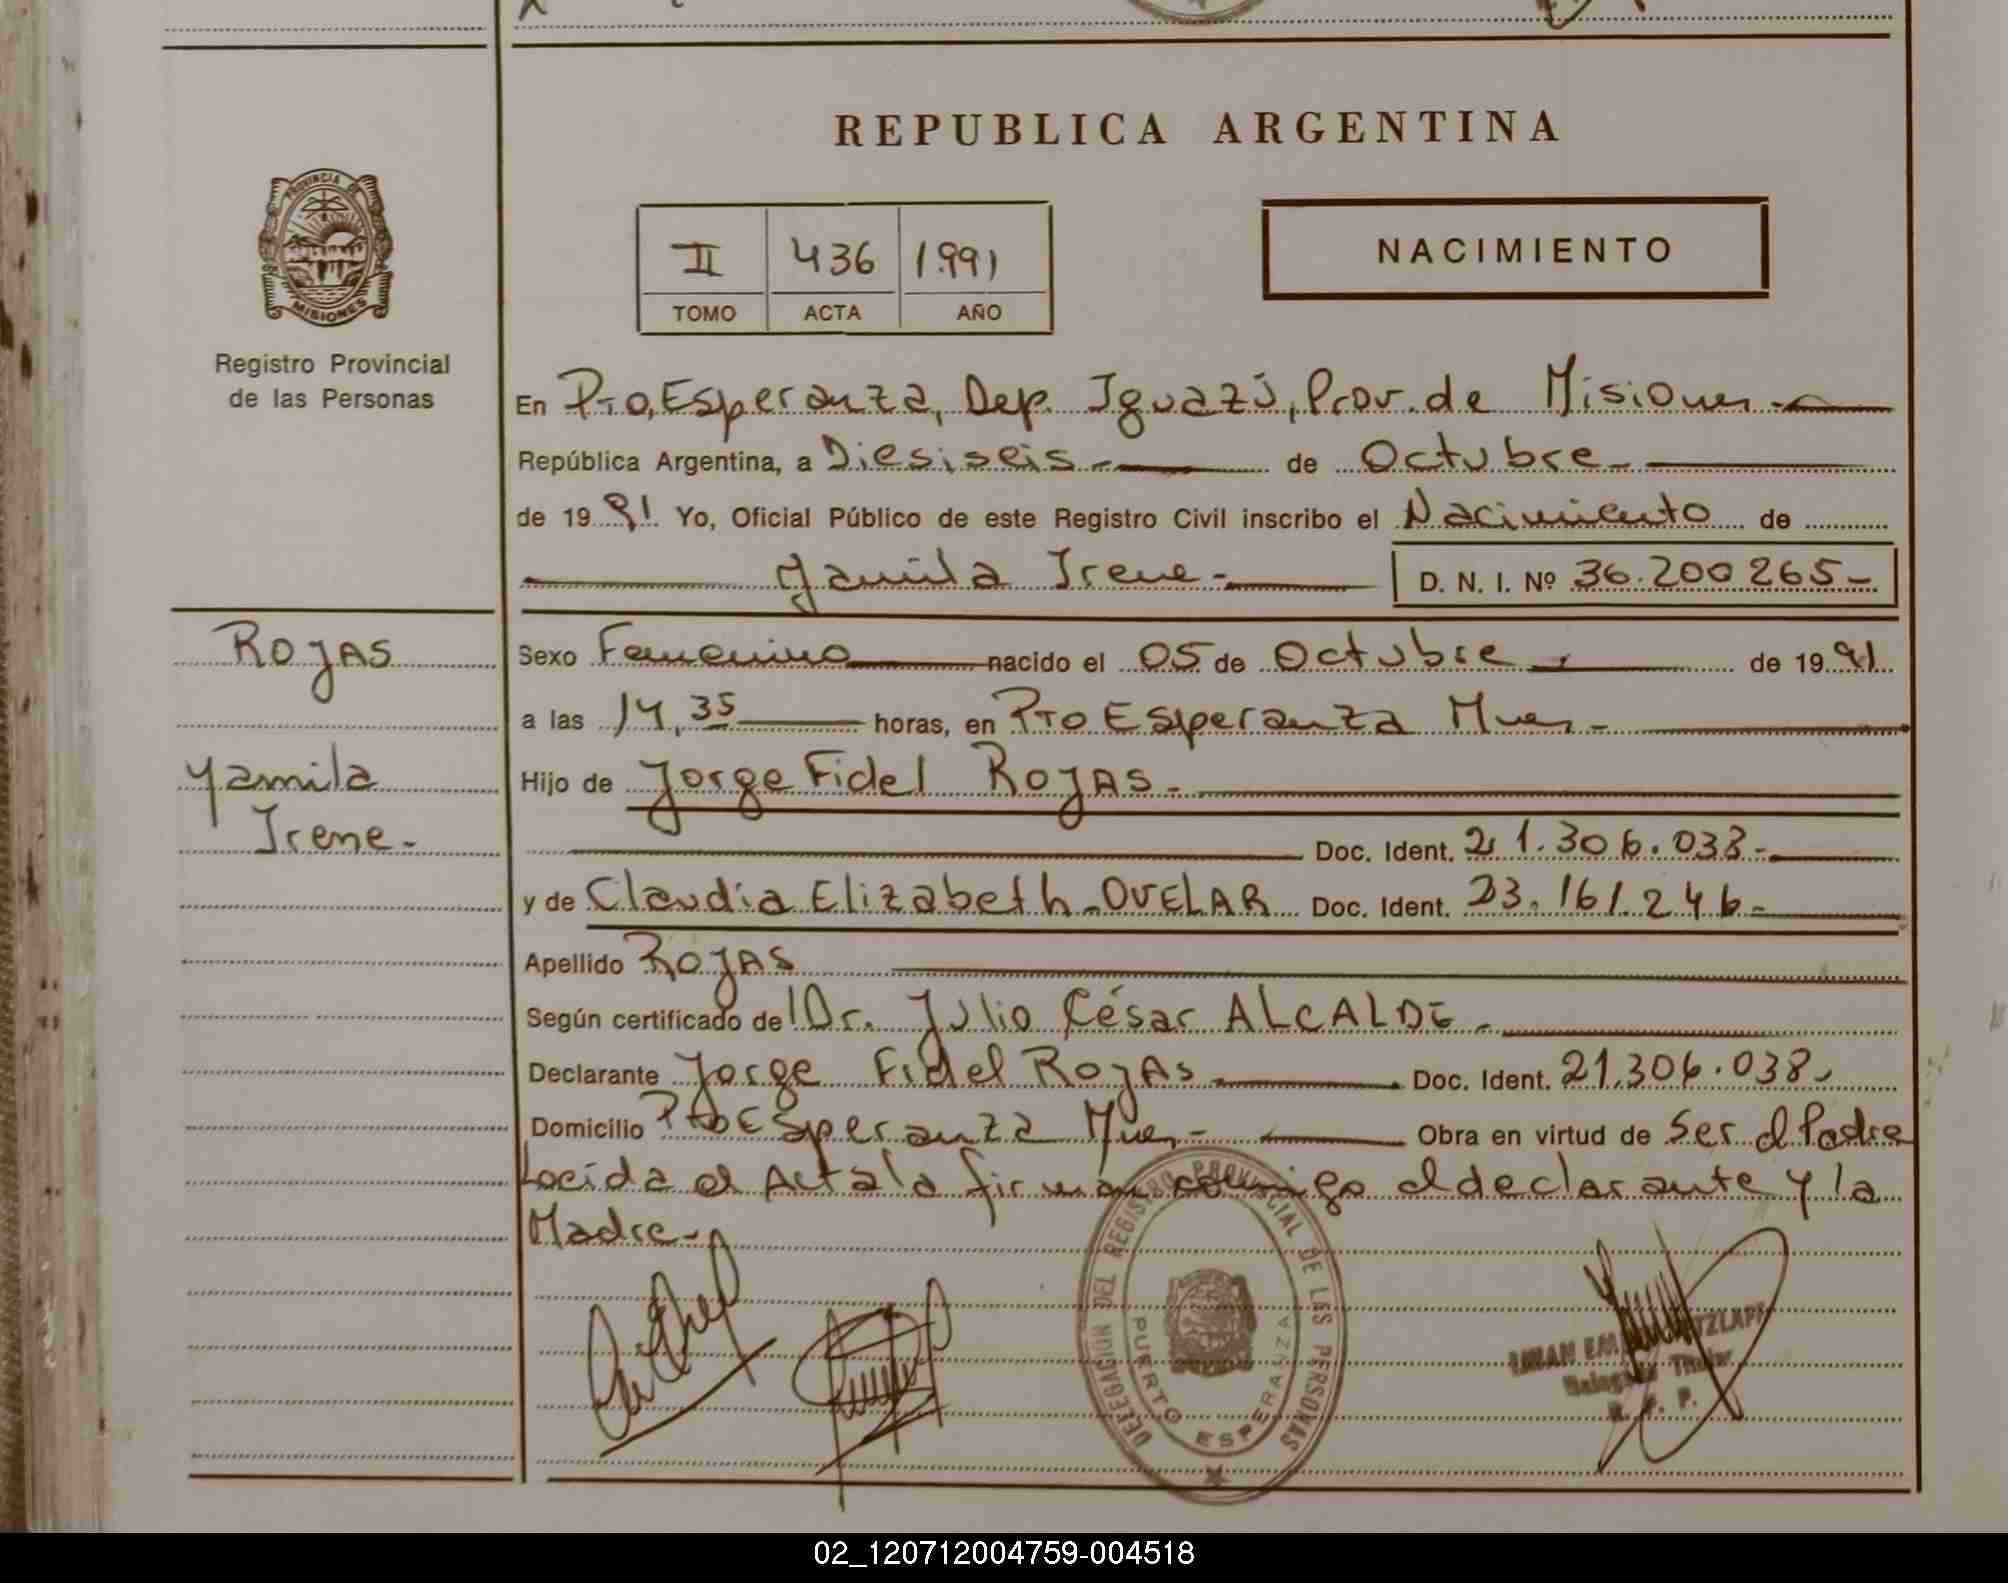 REPUBLICA ARGENTINA
PROVINCIA DE
MISIONES
Registro Provincial
de las Personas
II 436 1991
TOMO ACTA AÑO
NACIMIENTO
En Pto, Esperanza, Dep. Iguazú, Prov. de Misiones
República Argentina, a Diesiseis de Octubre
de 19 91 Yo, Oficial Público de este Registro Civil inscribo el Nacimiento de
Yamila Irene D. N. I. Nº 36.200265
ROJAS
Yamila
Irene
Sexo Femenino nacido el 05 de Octubre de 19 91
a las 14,35 horas, en Pto Esperanza Mnes
Hijo de Jorge Fidel ROJAS
Doc. Ident. 21.306.038
y de Claudia Elizabeth OVELAR Doc. Ident. 23.161.246
Apellido ROJAS
Según certificado de Dr. Julio César ALCALDE
Declarante Jorge Fidel ROJAS Doc. Ident. 21.306.038
Domicilio Pto Esperanza Mnes Obra en virtud de Ser el Padre
Lecída el Acta la firman comigo el declarante y la
Madre
DELEGACION DEL REGISTRO PROVINCIAL DE LAS PERSONAS
PUERTO ESPERANZA
R. P. P.
02_120712004759-004518